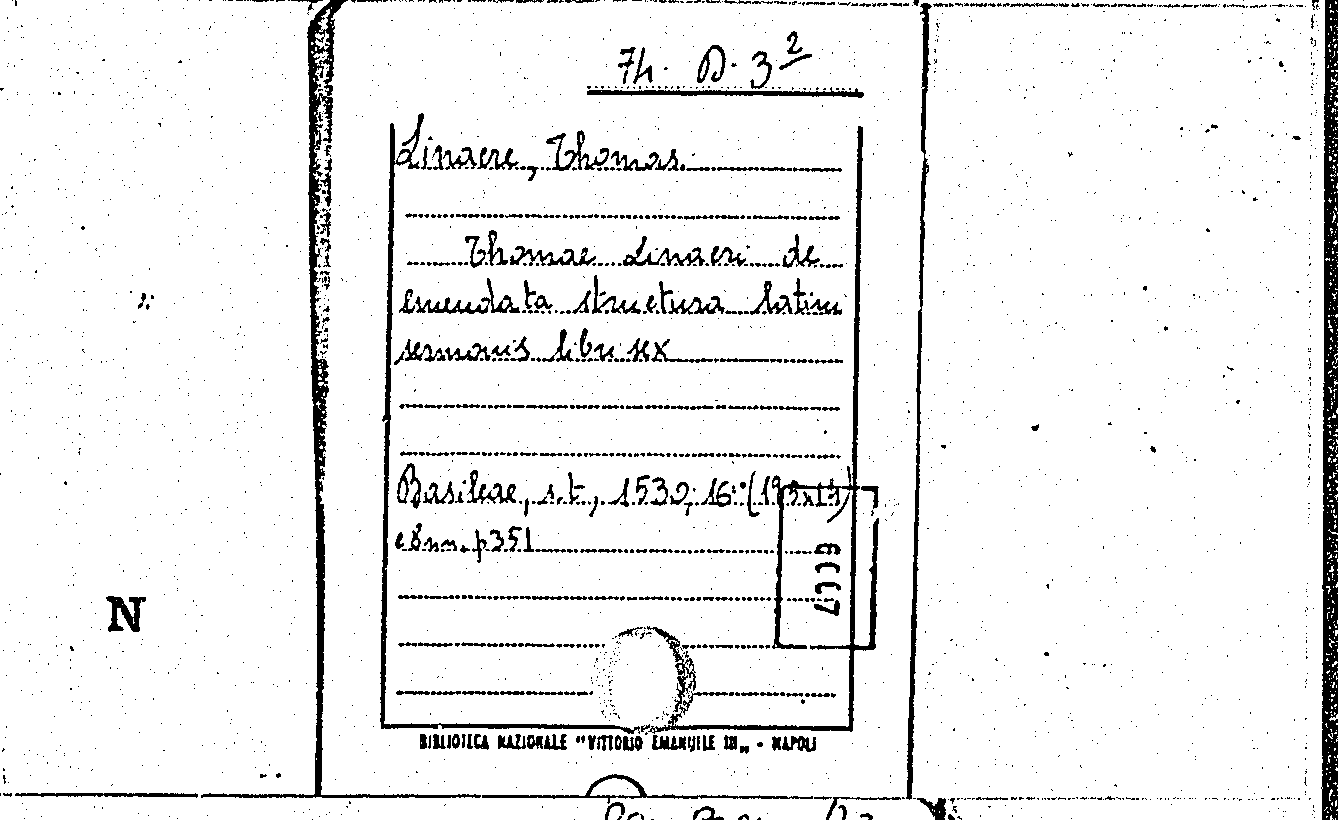 74. D. 3²
Linacre, Thomas.
Thomae Linacri de
emendata structura latini
sermonis libri sex
Basileae, s.t., 1530; 16° (19,5x13)
c 8 nn. p 351
N
BIBLIOTECA NAZIONALE "VITTORIO EMANUELE III„ - NAPOLI